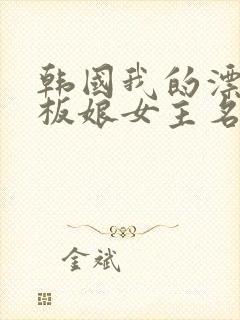 韩国我的漂
板娘女主名
金斌